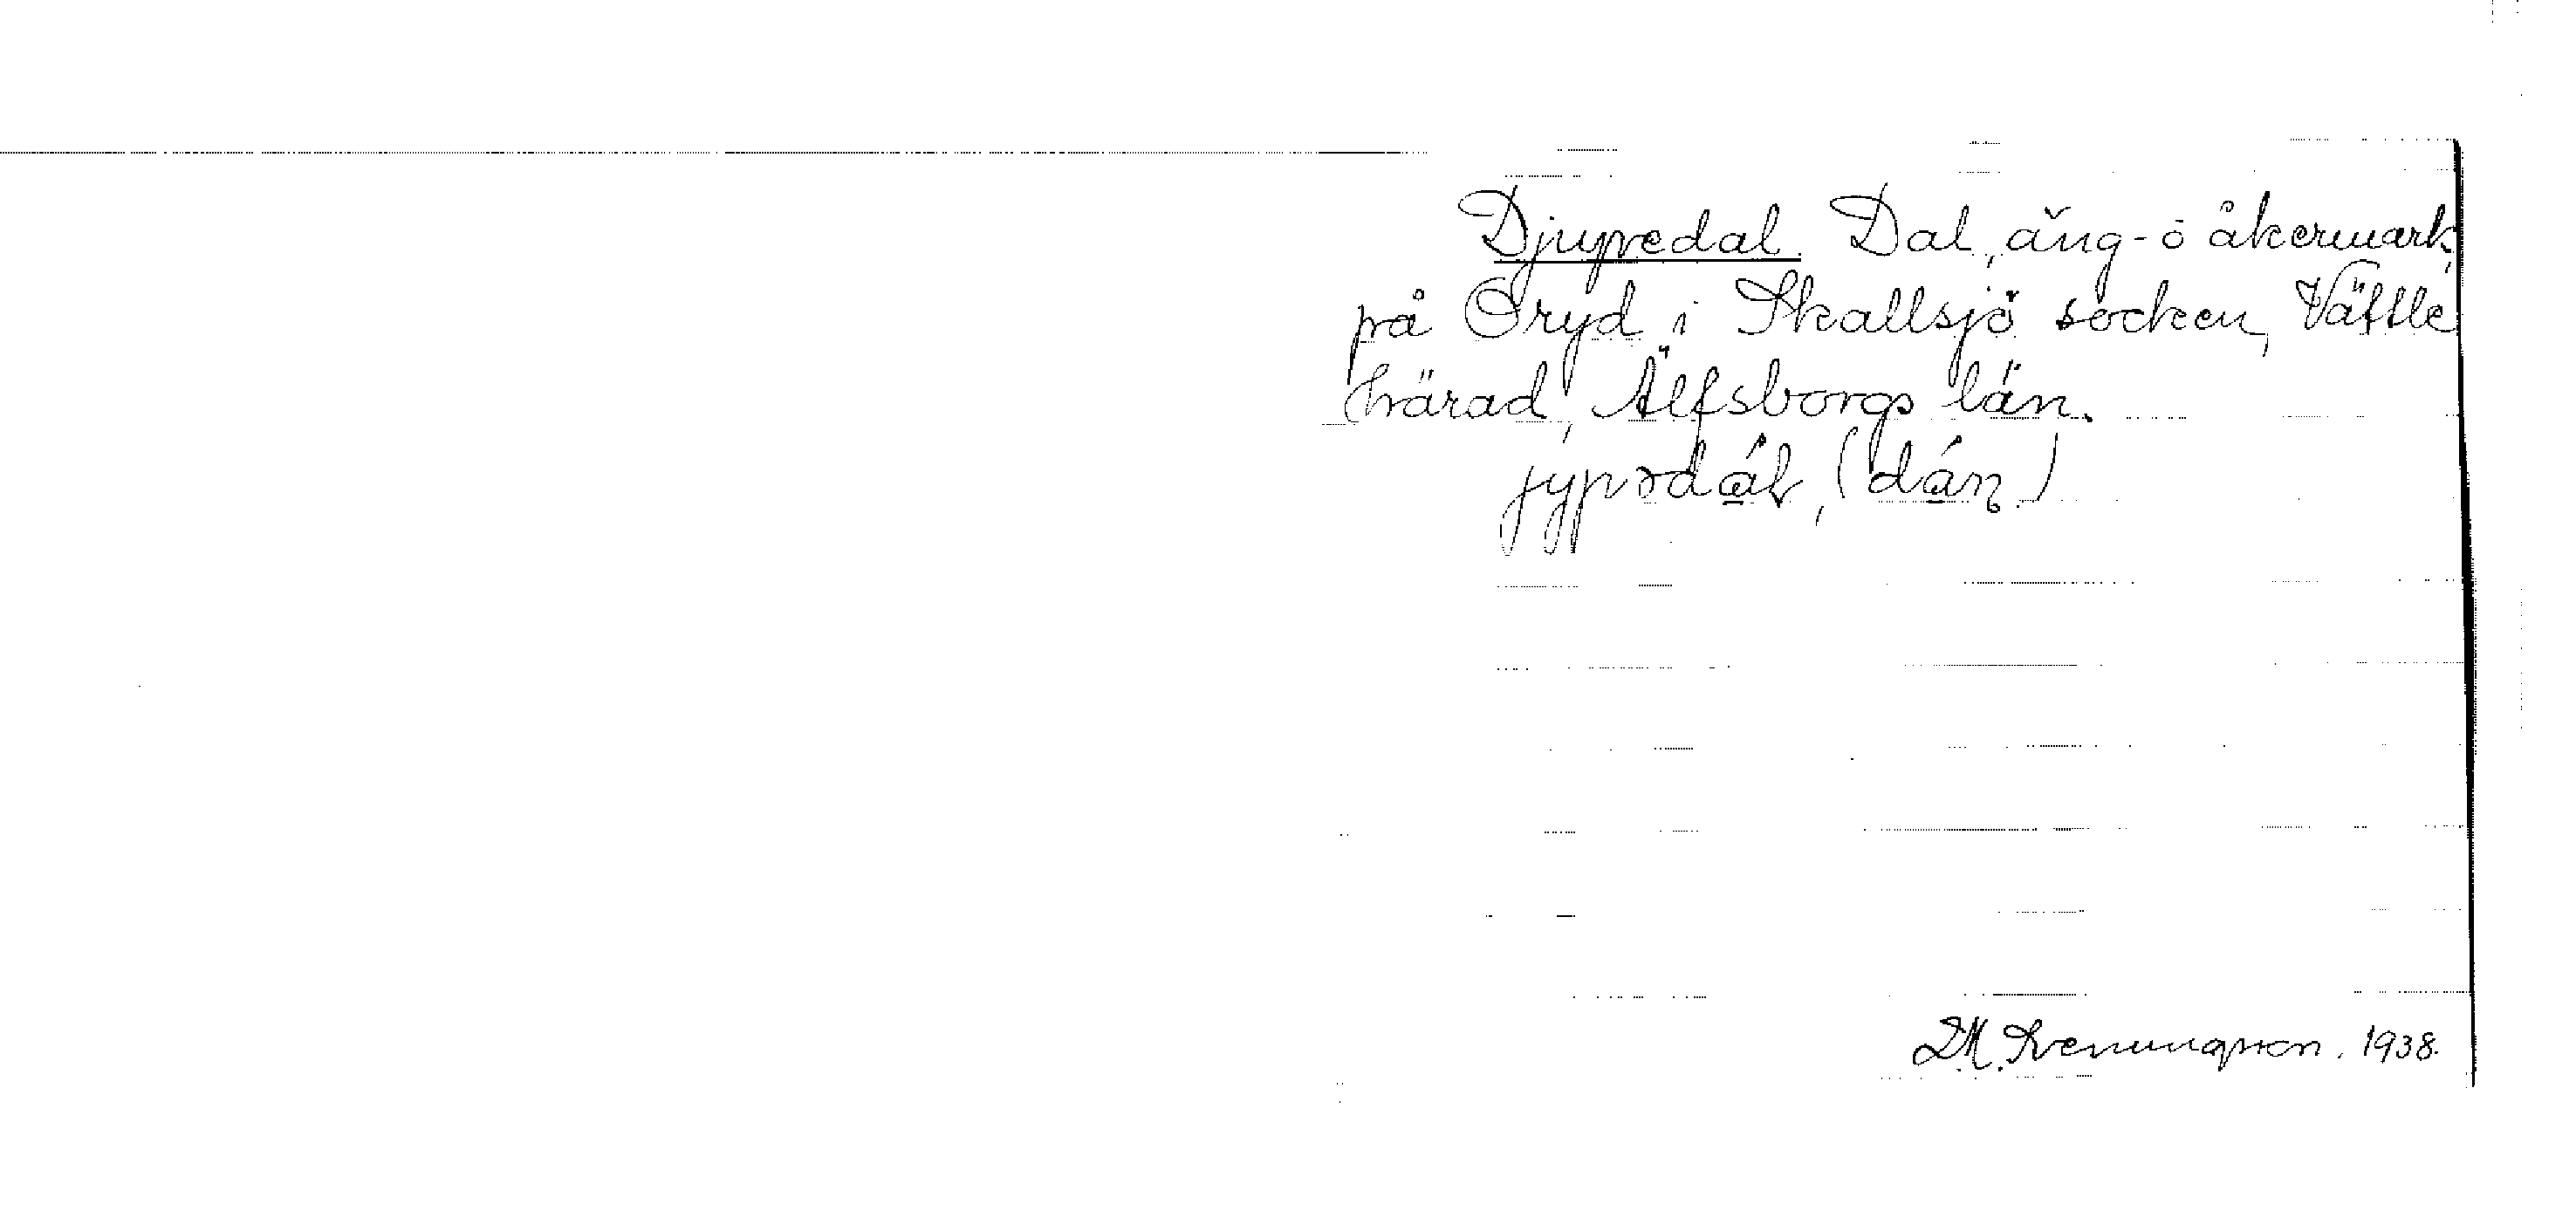 Djupedal. Dal, äng- o åkermark,
på Öryd i Skallsjö socken, Vättle
härad, Älfsborgs län.
jypədál, (dán)
1938.